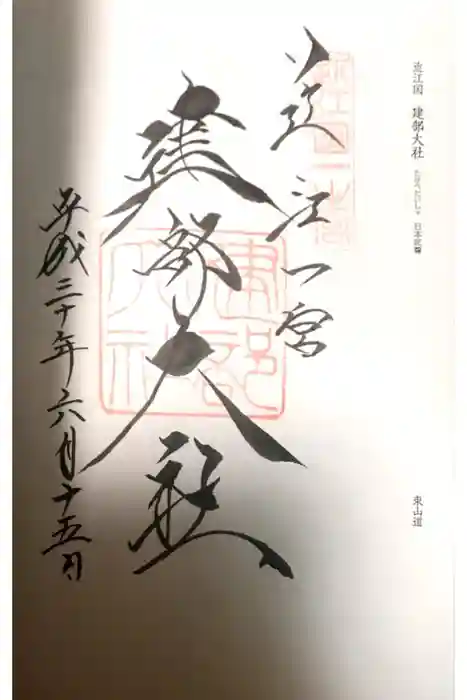 近江国 建部大社 たけべたいしゃ 日本武尊
東山道
近江一宮
建部大社
平成三十年六月十五日
建部大社